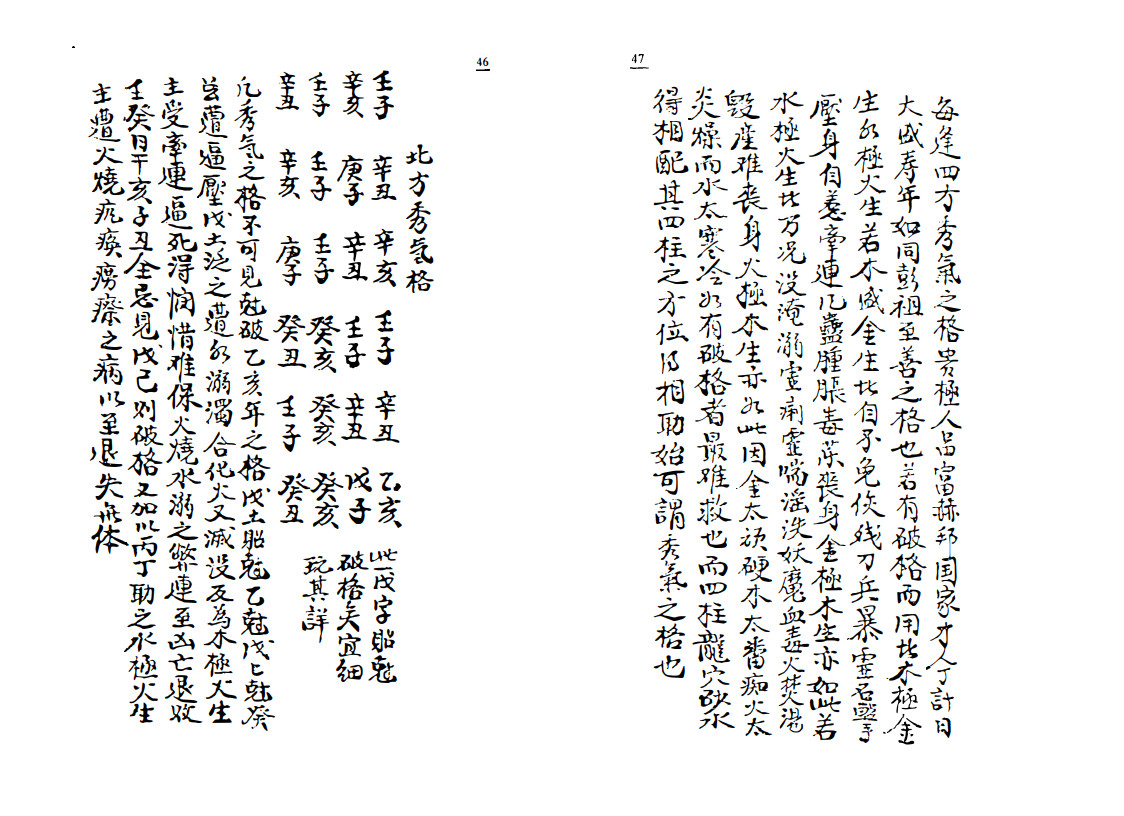 46
北方秀氣格
壬子 辛丑 辛亥 壬子 辛丑 乙亥 此戊字貼尅
辛亥 庚子 辛丑 壬子 辛丑 戊子 破格矣宜細
壬子 壬子 壬子 癸亥 癸亥 癸亥 玩其詳
辛丑 辛亥 庚子 癸丑 壬子 癸丑
凡秀氣之格不可見尅破乙亥年之格戊土貼尅乙尅戊尅癸
皆遭逼壓戊土泛之遭水溺濁合化火又滅没反為木極火生
主受牽連逼死得憫惜难保火燒水溺之弊連至凶亡退敗
壬癸日干亥子丑全忌見戊己则破格又加以丙丁助之水極火生
主遭火燒瘓癆瘵之病以至退失無体
47
每逢四方秀氣之格贵極人昌富赫邦国家才人丁計日
大盛寿年如同彭祖至善之格也若有破格而用此木極金
生水極火生若木盛金生此自不免伙残刀兵暴
壓身自蹇牽連凡蠱腫脹毒喪身金極木生亦如此若
水極火生此万况没淹溺痢喘淫泆妖魔血毒火焚湯
毀產难喪身火極水生亦如此因金太硬木太痴火太
炎燥而水太寒冷如有破格者最难救也而四柱龍穴砂水
得相配其四柱之方位得相助始可謂秀氣之格也